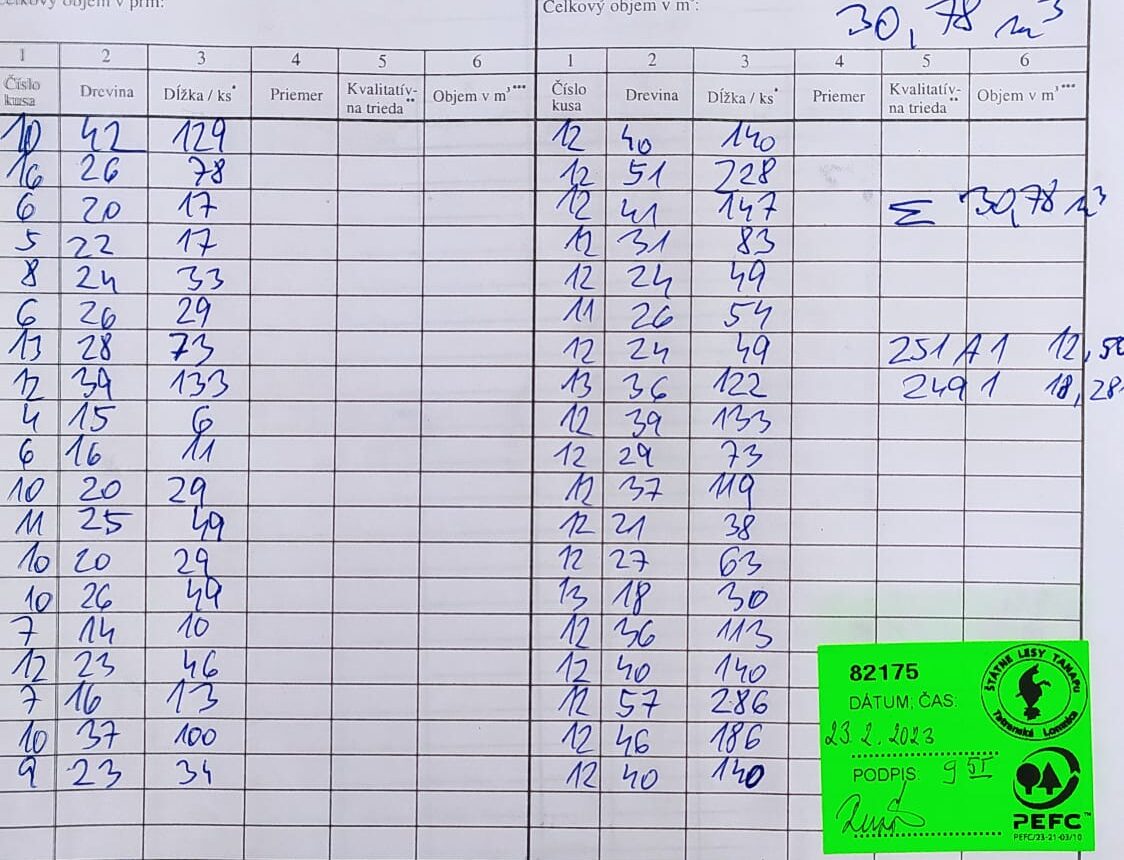 Celkový objem v prm:
Celkový objem v m³: 30,78 m³
1 2 3 4 5 6 1 2 3 4 5 6
Číslo kusa Drevina Dĺžka / ks* Priemer Kvalitatív-na trieda** Objem v m³*** Číslo kusa Drevina Dĺžka / ks* Priemer Kvalitatív-na trieda** Objem v m³***
10 42 129 12 40 140
16 26 78 12 51 228
6 20 17 12 41 147 Σ 30,78 m³
5 22 17 12 31 83
8 24 33 12 24 49
6 26 29 11 26 54
13 28 73 12 24 49 251 A1 12,50
12 39 133 13 36 122 249 1 18,28
4 15 6 12 39 133
6 16 11 12 29 73
10 20 29 12 37 119
11 25 49 12 21 38
10 20 29 12 27 63
10 26 49 13 18 30
7 14 10 12 36 113
12 23 46 12 40 140
7 16 13 12 57 286
10 37 100 12 46 186
9 23 34 12 40 140
82175
DÁTUM, ČAS:
23.2.2023
PODPIS 9 55
ŠTÁTNE LESY TANAPU
Tatranská Lomnica
PEFC™
PEFC/23-21-03/10